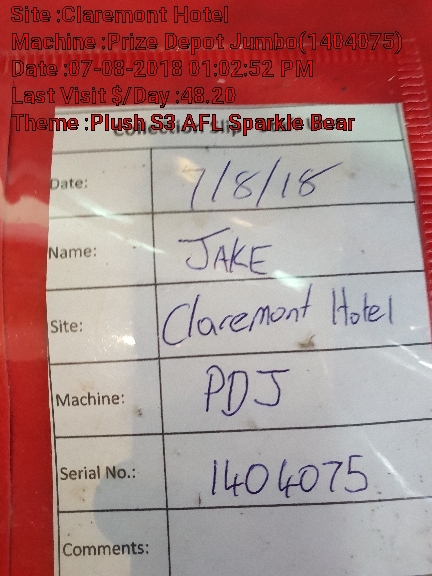 Site :Claremont Hotel
Machine :Prize Depot Jumbo(1404075)
Date :07-08-2018 01:02:52 PM
Last Visit $/Day :48.20
Theme :Plush S3 AFL Sparkle Bear
Collection Slip
Date: 7/8/18
Name: JAKE
Site: Claremont Hotel
Machine: PDJ
Serial No.: 1404075
Comments: